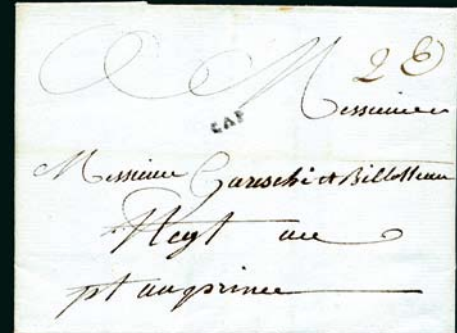 A Messieurs 2 &
CAP
Messieurs Gareschè et Billotteau
Negt au
pt auprince